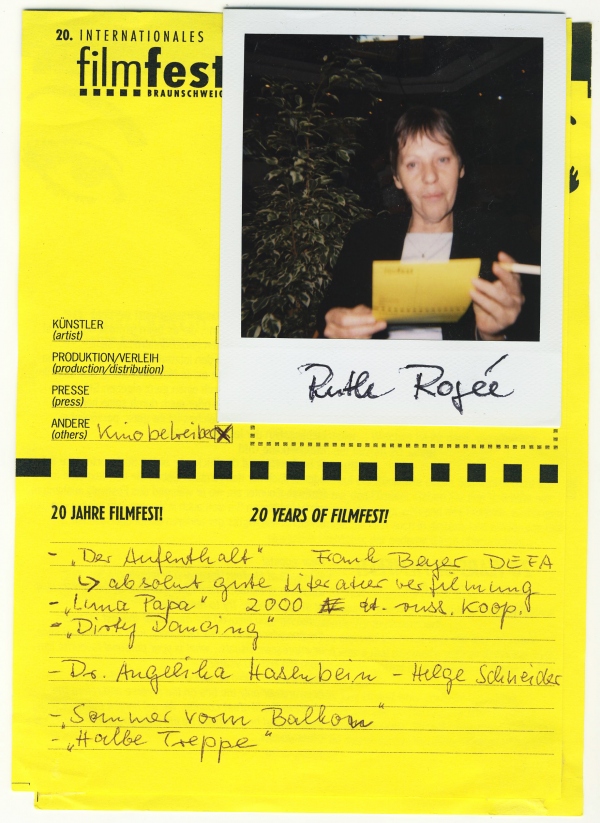 20. INTERNATIONALES
filmfest
BRAUNSCHWEIG
KÜNSTLER
(artist)
PRODUKTION/VERLEIH
(production/distribution)
PRESSE
(press)
ANDERE
(others) Kinobetreiber
Ruth Rogée
20 JAHRE FILMFEST! 20 YEARS OF FILMFEST!
- „Der Aufenthalt" Frank Beyer DEFA
↳ absolut gute Literaturverfilmung
- „Luna Papa" 2000 dt. russ. Koop.
- „Dirty Dancing"
- Dr. Angelika Hasenbein - Helge Schneider
- „Sommer vorm Balkon"
- „Halbe Treppe"